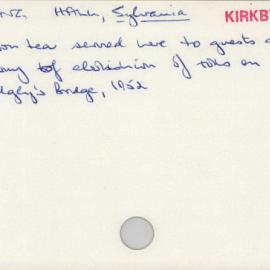 Hall, Sylvania
KIRKB
tea served here to guests
of abolition of tolls on
Bridge, 1952